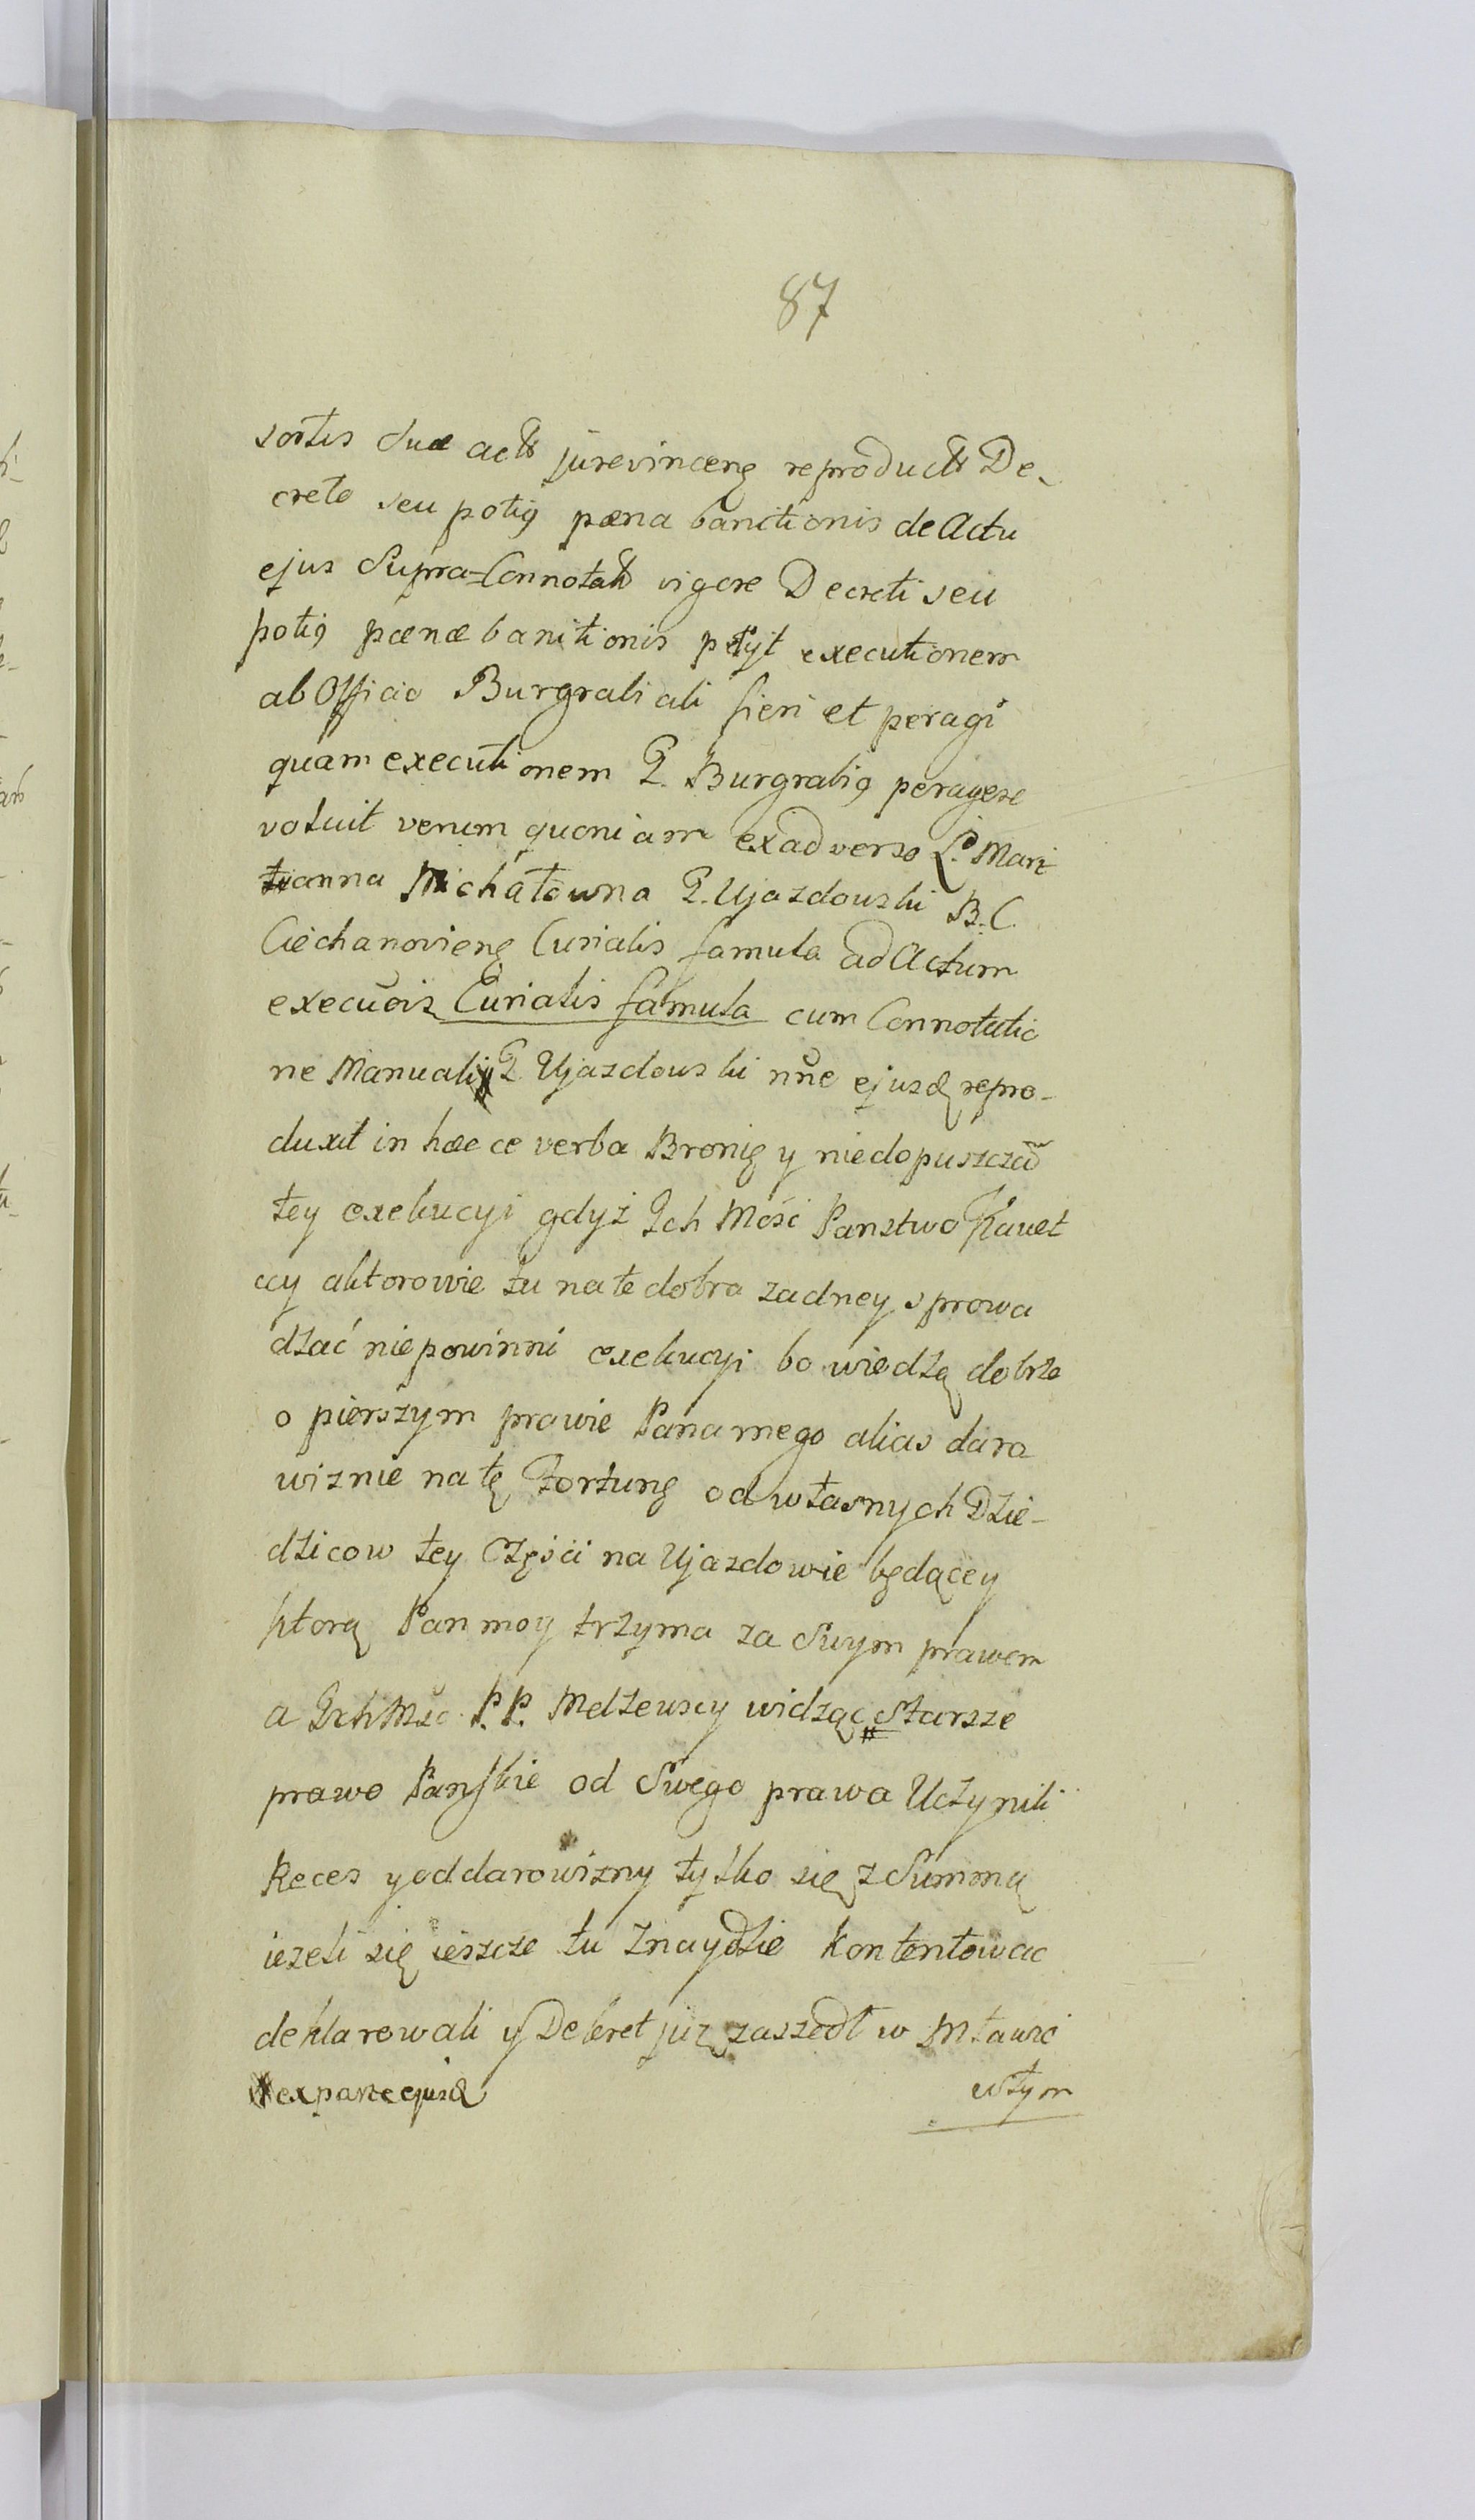 87
sortis suæ actt jurevinceng reproductt De-
creto seu potiꝰ pæna banitionis de Actu
ejus Supra=Connotatt vigore Decreti seu
potiꝰ pænæ banitionis petyt executionem
ab Officio Burgrabiali fieri et peragi
quam executionem G. Burgrabiꝰ peragere
voluit verum quoniam exadverso L. Mari
anna Michałowna G. Ujazdowski B. C.
Ciechanovieng Curialis famula ad Actum
execuois Curialis famula cum Connotatio
ne Manuali G. Ujazdowski nne ejusd repro-
duxit in hæce verba Bronię y niedopuszczam
tey exekucyi gdyż Ich Mość Panstwo Kawet
ccy aktorowie tu na te dobra zadney sprowa
dzać niepowinni exekucyi bo wiedzą dobrze
o pierszym prawie Pana mego alias daro
wiznie na tę Fortunę od własnych Dzie-
dzicow tey Części na Ujazdowie będącey
ktorą Pan moy trzyma za Swym prawem
a IchMść P.P. Mdzewscy widząc Starsze
prawo Pańskie od Swego prawa Uczynili
Reces y od darowizny tylko się z Summą
iezeli się ieszcze tu Znaydzie kontentowac
deklarowali y Dekret już zaszedł w Mławie
ex parte ejusd
wtym